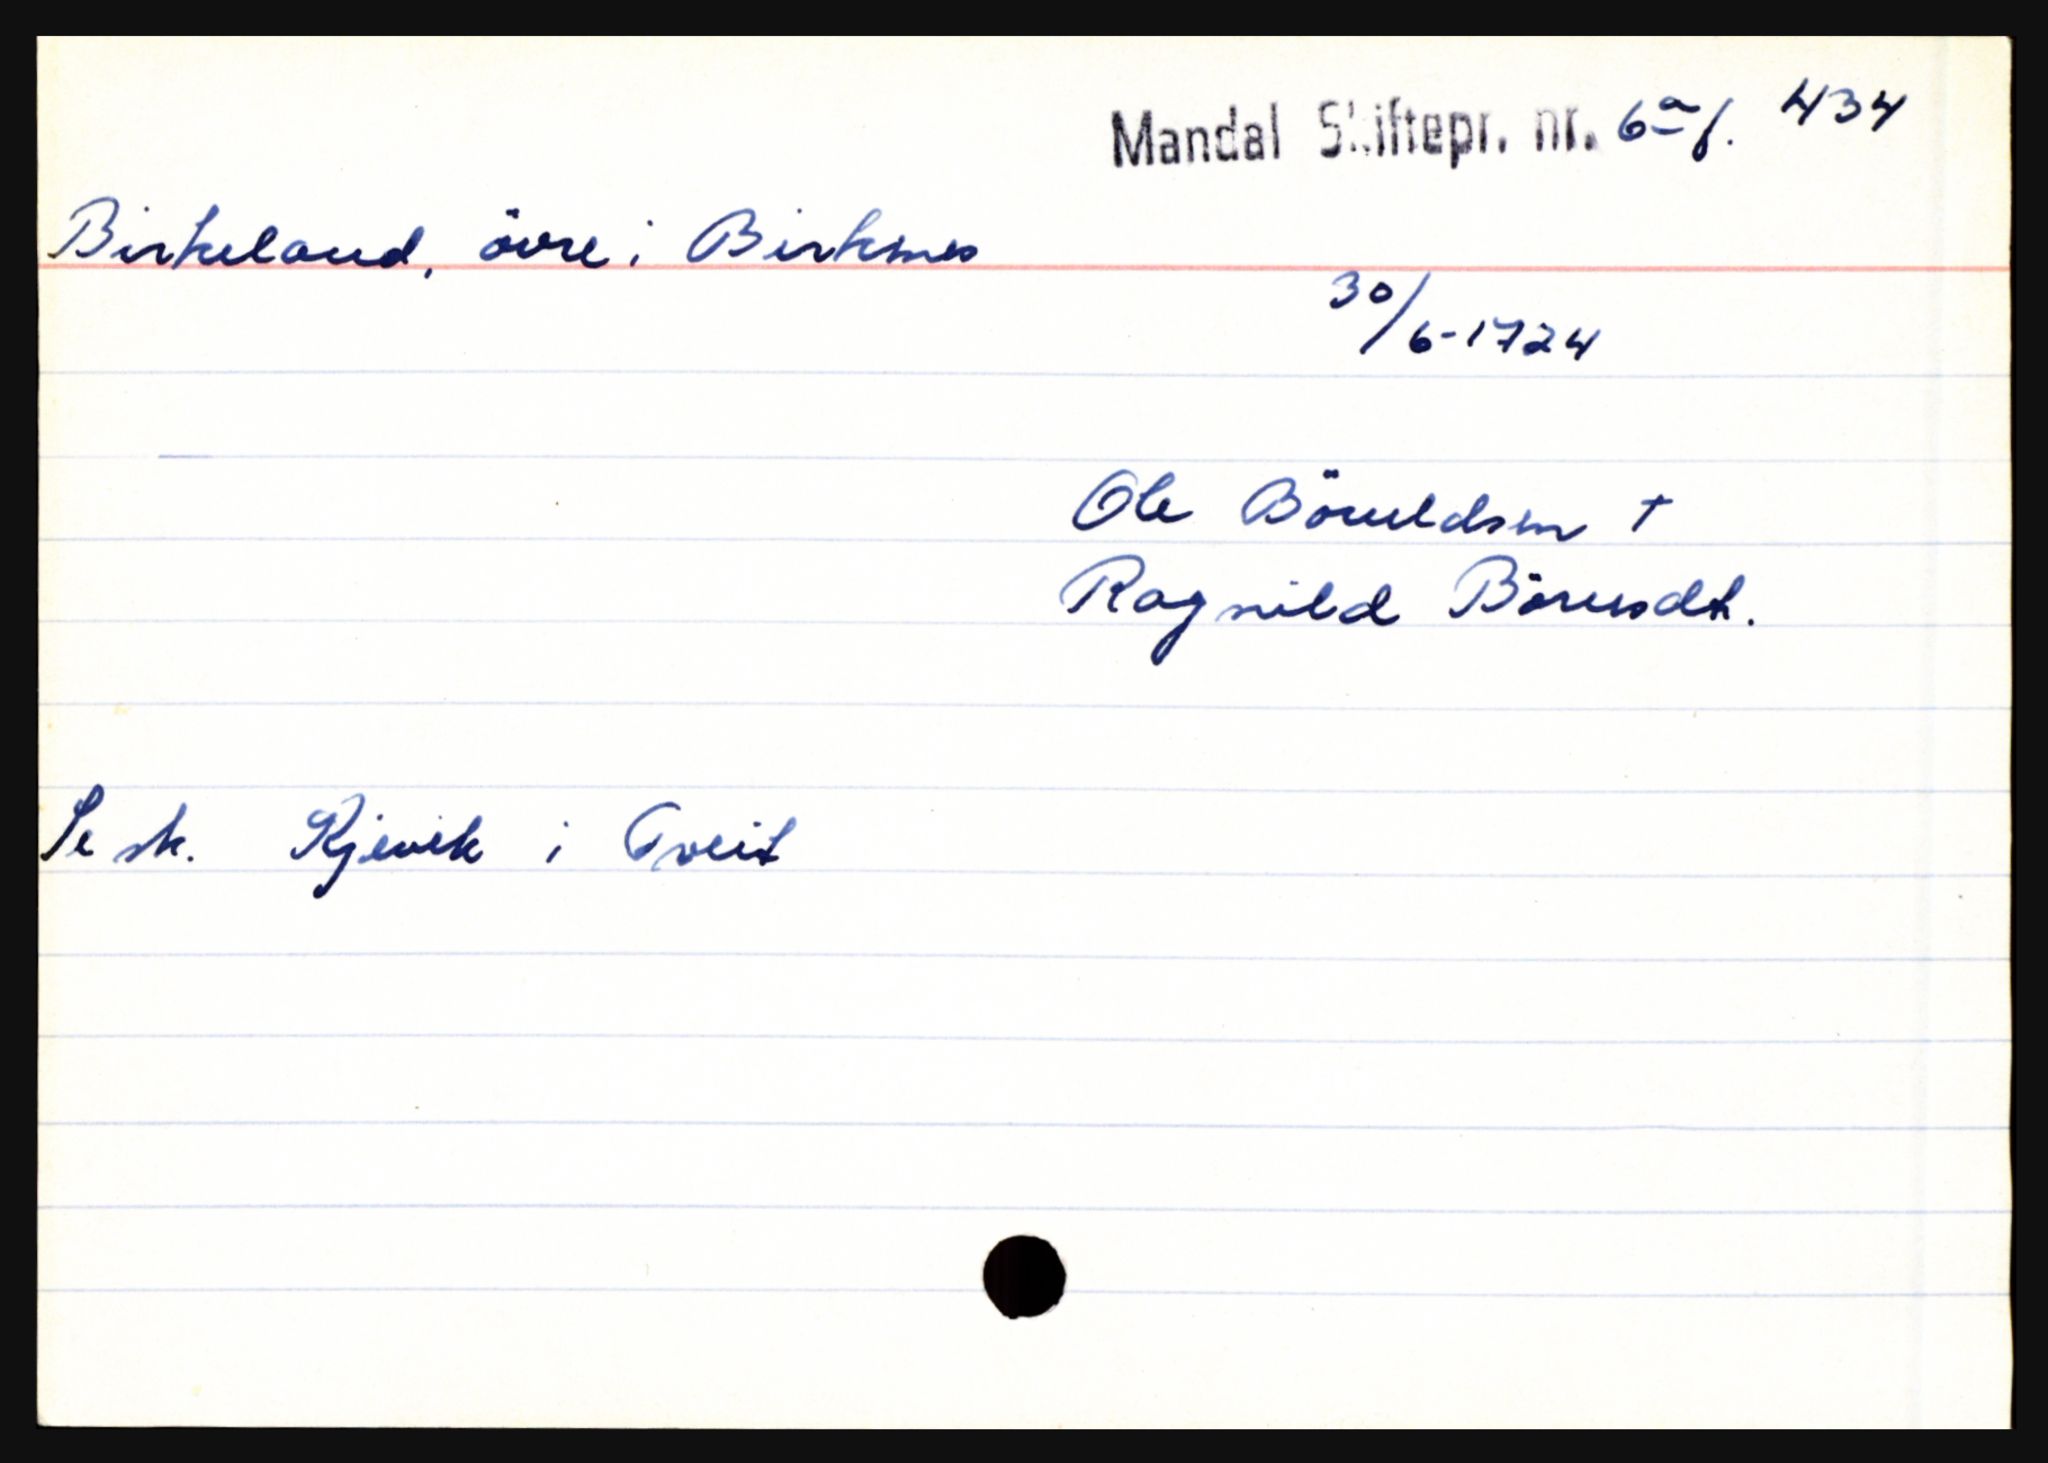 Mandal Skiftepr. nr. 6a f. 434
Birkeland, övre i Birkenes
30/6-1724
Ole Böruldsen +
Ragnild Börusdt.
Se sk. Kjevik i Tveit